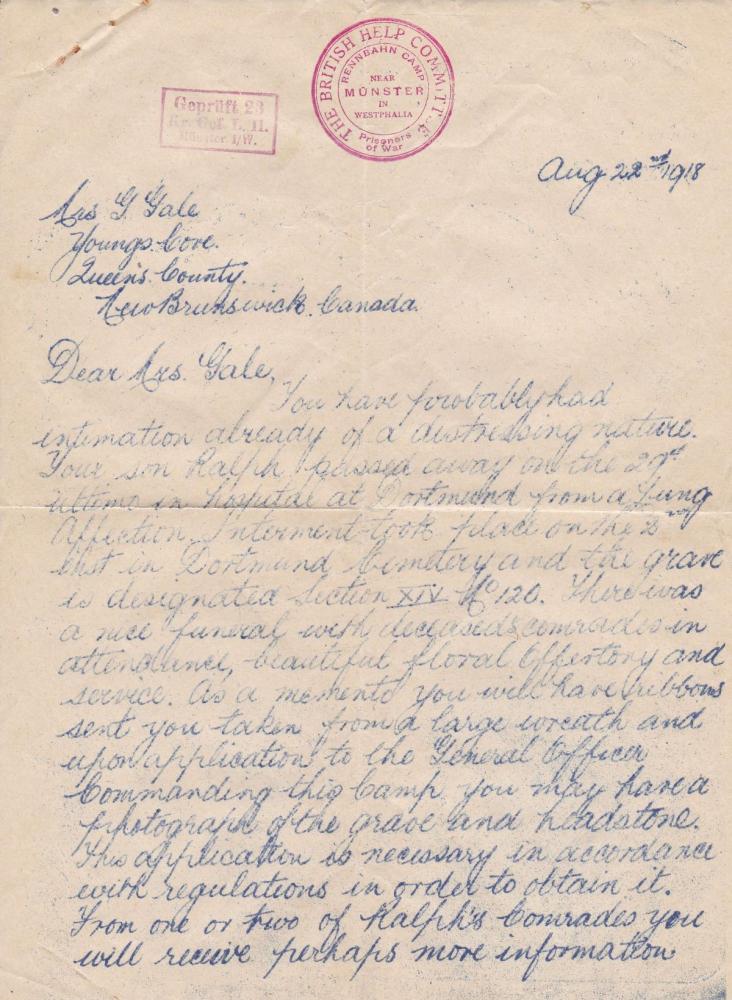 THE BRITISH HELP COMMITTEE
RENNBAHN CAMP
NEAR
MÜNSTER
IN
WESTPHALIA
Prisoners
of War
Geprüft 23
Kr. Gef. L. II.
Münster i/W.
Aug 22nd 1918
Mrs G. Gale
Youngs Cove.
Queen's County.
New Brunswick. Canada.
Dear Mrs. Gale,
You have probably had
intimation already of a distressing nature.
Your son Ralph passed away on the 29th
ultimo in hospital at Dortmund from a Lung
Affection. Interment took place on the 2nd
inst in Dortmund Cemetery and the grave
is designated Section XIV No 120. There was
a nice funeral with deceased's comrades in
attendance, beautiful floral Offertory and
service. As a memento you will have ribbons
sent you taken from a large wreath and
upon application to the General Officer
Commanding this Camp you may have a
photograph of the grave and headstone.
This application is necessary in accordance
with regulations in order to obtain it.
From one or two of Ralph's Comrades you
will receive perhaps more information